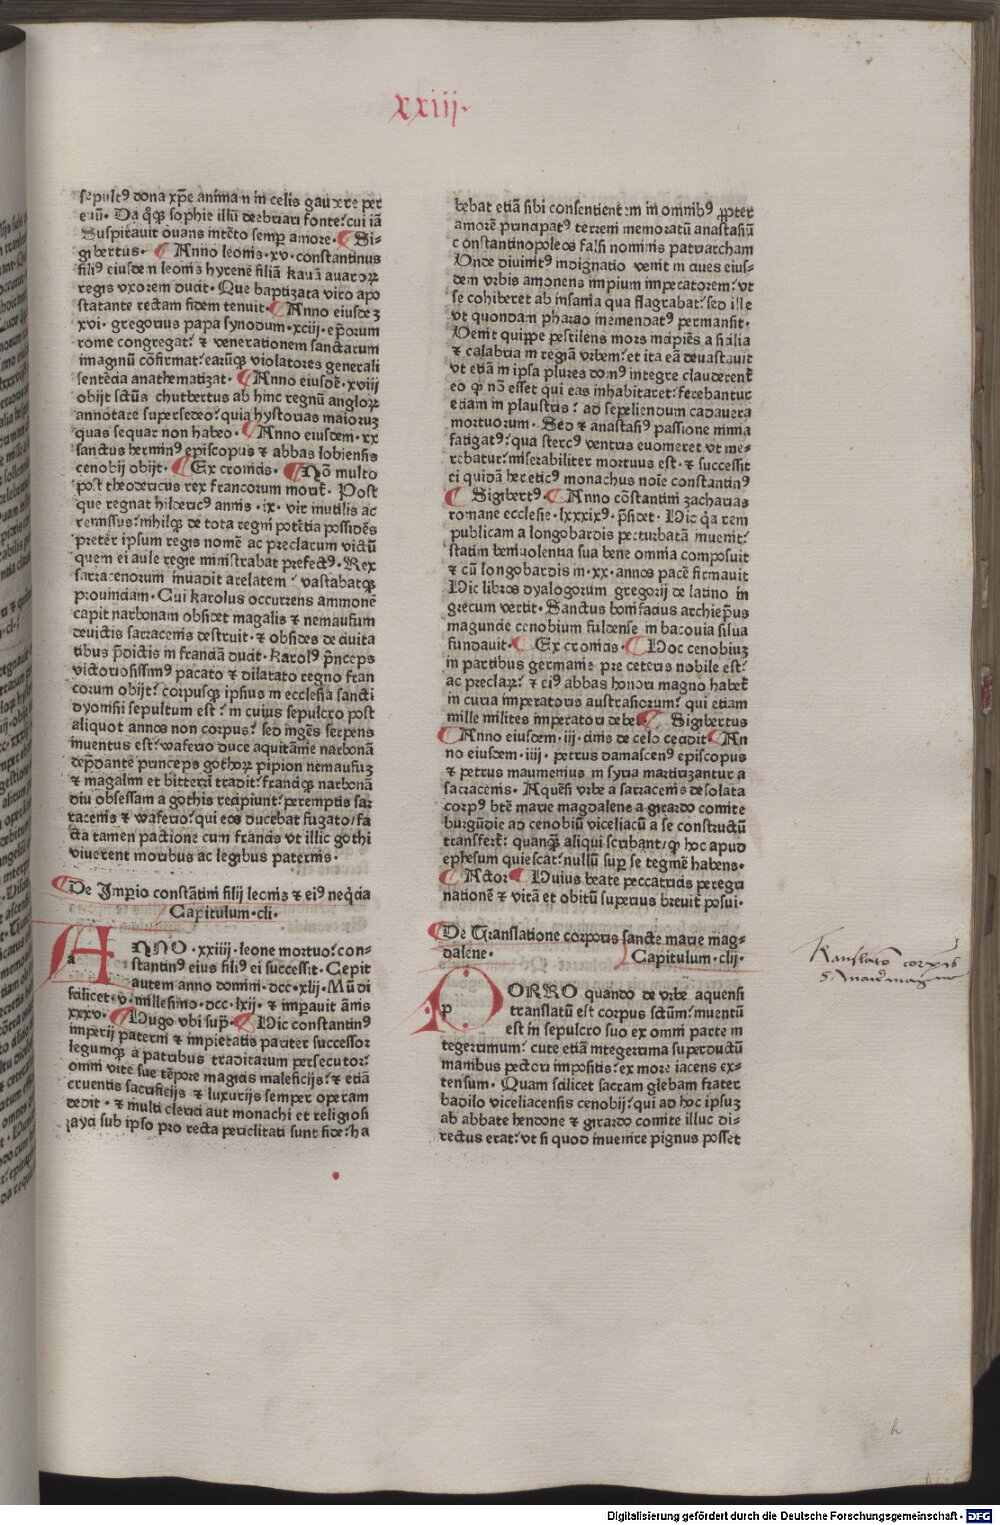 xxiij.
sepultꝰ dona xp̄e animam in celis gaudere per
euū. Da q̄ꝫ sophie illū debriari fonte: cui iā
Suspirauit ouans intēto semp̱ amore. Si-
gibertus. Anno leonis .xv. constantinus
filiꝰ eiusdem leonis hyrenē filiā kauā auarorꝝ
regis vxorem ducit. Que baptizata viro apo
statante rectam fidem tenuit. Anno eiusdeꝫ
xvi. gregorius papa synodum .xciij. ep̄orum
rome congregat: ⁊ venerationem sanctarum
imaginū cōfirmat: earūqꝫ violatores generali
sentētia anathematizat. Anno eiusdē .xviij
obijt sctūs chutbertus ab hinc regnū anglorꝝ
annotare supersedeo: quia hystorias maioruꝫ
quas sequar non habeo. Anno eiusdem .xx
sanctus herminꝰ episcopus ⁊ abbas lobiensis
cenobij obijt. Ex cronicis. Nō multo
post theodericus rex francorum morit̄. Post
que regnat hildericꝰ annis .ix. vir inutilis ac
remissus: nihilqꝫ de tota regni potētia possidēs
preter ipsum regis nomē ac preclarum victū
quem ei aule regie ministrabat prefectꝰ. Rex
sarracenorum inuadit arelatem: vastabatqꝫ
prouinciam. Cui karolus occurrens ammonē
capit narbonam obsidet magalis ⁊ nemausum
deuictis sarracenis destruit. ⁊ obsides de ciuita
tibus p̄dictis in franciā ducit. karolꝰ p̄nceps
victoriosissimꝰ pacato ⁊ dilatato regno fran
corum obijt: corpusqꝫ ipsius in ecclesia sancti
dyonisij sepultum est: in cuius sepulcro post
aliquot annos non corpus: sed ingēs serpens
inuentus est: waferio duce aquitanie narbonā
dep̄dante princeps gothorꝝ pipion nemausuꝫ
⁊ magalim et bitterri tradit: franciqꝫ narbonā
diu obsessam a gothis recipiunt: peremptis sar
racenis ⁊ waferio: qui eos ducebat fugato: fa
cta tamen pactione cum francis vt illic gothi
viuerent moribus ac legibus paternis.
De Imp̱io constātini filij leonis ⁊ eiꝰ neq̄cia
Capitulum .cli.
a
ANNO .xxiiij. leone mortuo: con-
stantinꝰ eius filiꝰ ei successit. Cepit
autem anno domini .dcc.xlij. Mūdi
scilicet .v. millesimo .dcc.lxij. ⁊ imp̱auit ānis
xxxv. Hugo vbi sup̱. Hic constantinꝰ
imperij paterni ⁊ impietatis pariter successor
legumqꝫ a patribus traditarum persecutor:
omni vite sue tēpore magicis maleficijs: ⁊ etiā
cruentis sacrificijs ⁊ luxurijs semper operam
dedit. ⁊ multi clerici aut monachi et religiosi
layci sub ipso pro recta periclitati sunt fide: ha
bebat etiā sibi consentientem in omnibꝰ ꝓpter
amorē principatꝰ terreni memoratū anastasiū
constantinopoleos falsi nominis patriarcham
Unde diuinitꝰ indignatio venit in ciues eius-
dem vrbis amonens impium imperatorem: vt
se cohiberet ab insania qua flagrabat: sed ille
vt quondam pharao inemendatꝰ permansit.
Venit quippe pestilens mors incipiēs a sicilia
⁊ calabria in regiā vrbem: et ita eā deuastauit
vt etiā in ipsa plures domꝰ integre clauderent̄
eo ꝙ nō esset qui eas inhabitaret: ferebantur
etiam in plaustris: ad sepeliendum cadauera
mortuorum. Sed ⁊ anastasiꝰ passione nimia
fatigatꝰ: qua stercꝰ ventris euomeret vt me-
rebatur: miserabiliter mortuus est. ⁊ successit
ei quidā hereticꝰ monachus noīe constantinꝰ
Sigibertꝰ. Anno cōstantini zacharias
romane ecclesie .lxxxixꝰ. p̄sidet. Hic q̄a rem
publicam a longobardis perturbatā inuenit:
statim beniuolentia sua bene omnia composuit
⁊ cū longobardis in .xx. annos pacē firmauit
Hic libros dyalogorum gregorij de latino in
grecum vertit. Sanctus bonifacius archiep̄us
magunciē cenobium fuldense in baconia silua
fundauit. Ex cronicis. Hoc cenobiuꝫ
in partibus germanie pre ceteris nobile est:
ac preclarꝝ: ⁊ eiꝰ abbas honori magno habet̄
in curia imperatoris australiorum: qui etiam
mille milites imperatori debet. Sigibertus
Anno eiusdem .iij. cinis de celo cecidit An
no eiusdem .iiij. petrus damascenꝰ episcopus
⁊ petrus maumenius in syria martirizantur a
sarracenis. Aquensi vrbe a sarracenis desolata
corpꝰ btē marie magdalene a girardo comite
burgūdie ad cenobiū viceliacū a se constructū
transfert̄: quanqꝫ aliqui scribant: ꝙ hoc apud
ephesum quiescat: nullū sup̱ se tegmē habens.
Actor Huius beate peccatricis peregri
nationē ⁊ vitā et obitū superius breuit̄ posui.
De Translatione corporis sancte marie mag-
dalene. Capitulum .clij.
p
PORRO quando de vrbe aquensi
translatū est corpus sctūm: inuentū
est in sepulcro suo ex omni parte in
tegerrimum: cute etiā integerrima superductū
manibus pectori impositis: ex more iacens ex-
tensum. Quam scilicet sacram glebam frater
badilo viceliacensis cenobij: qui ad hoc ipsuꝫ
ab abbate heudone ⁊ girardo comite illuc di-
rectus erat: vt si quod inuenire pignus posset
Translatio corporis
S Marie magdalene
h
Digitalisierung gefördert durch die Deutsche Forschungsgemeinschaft - DFG